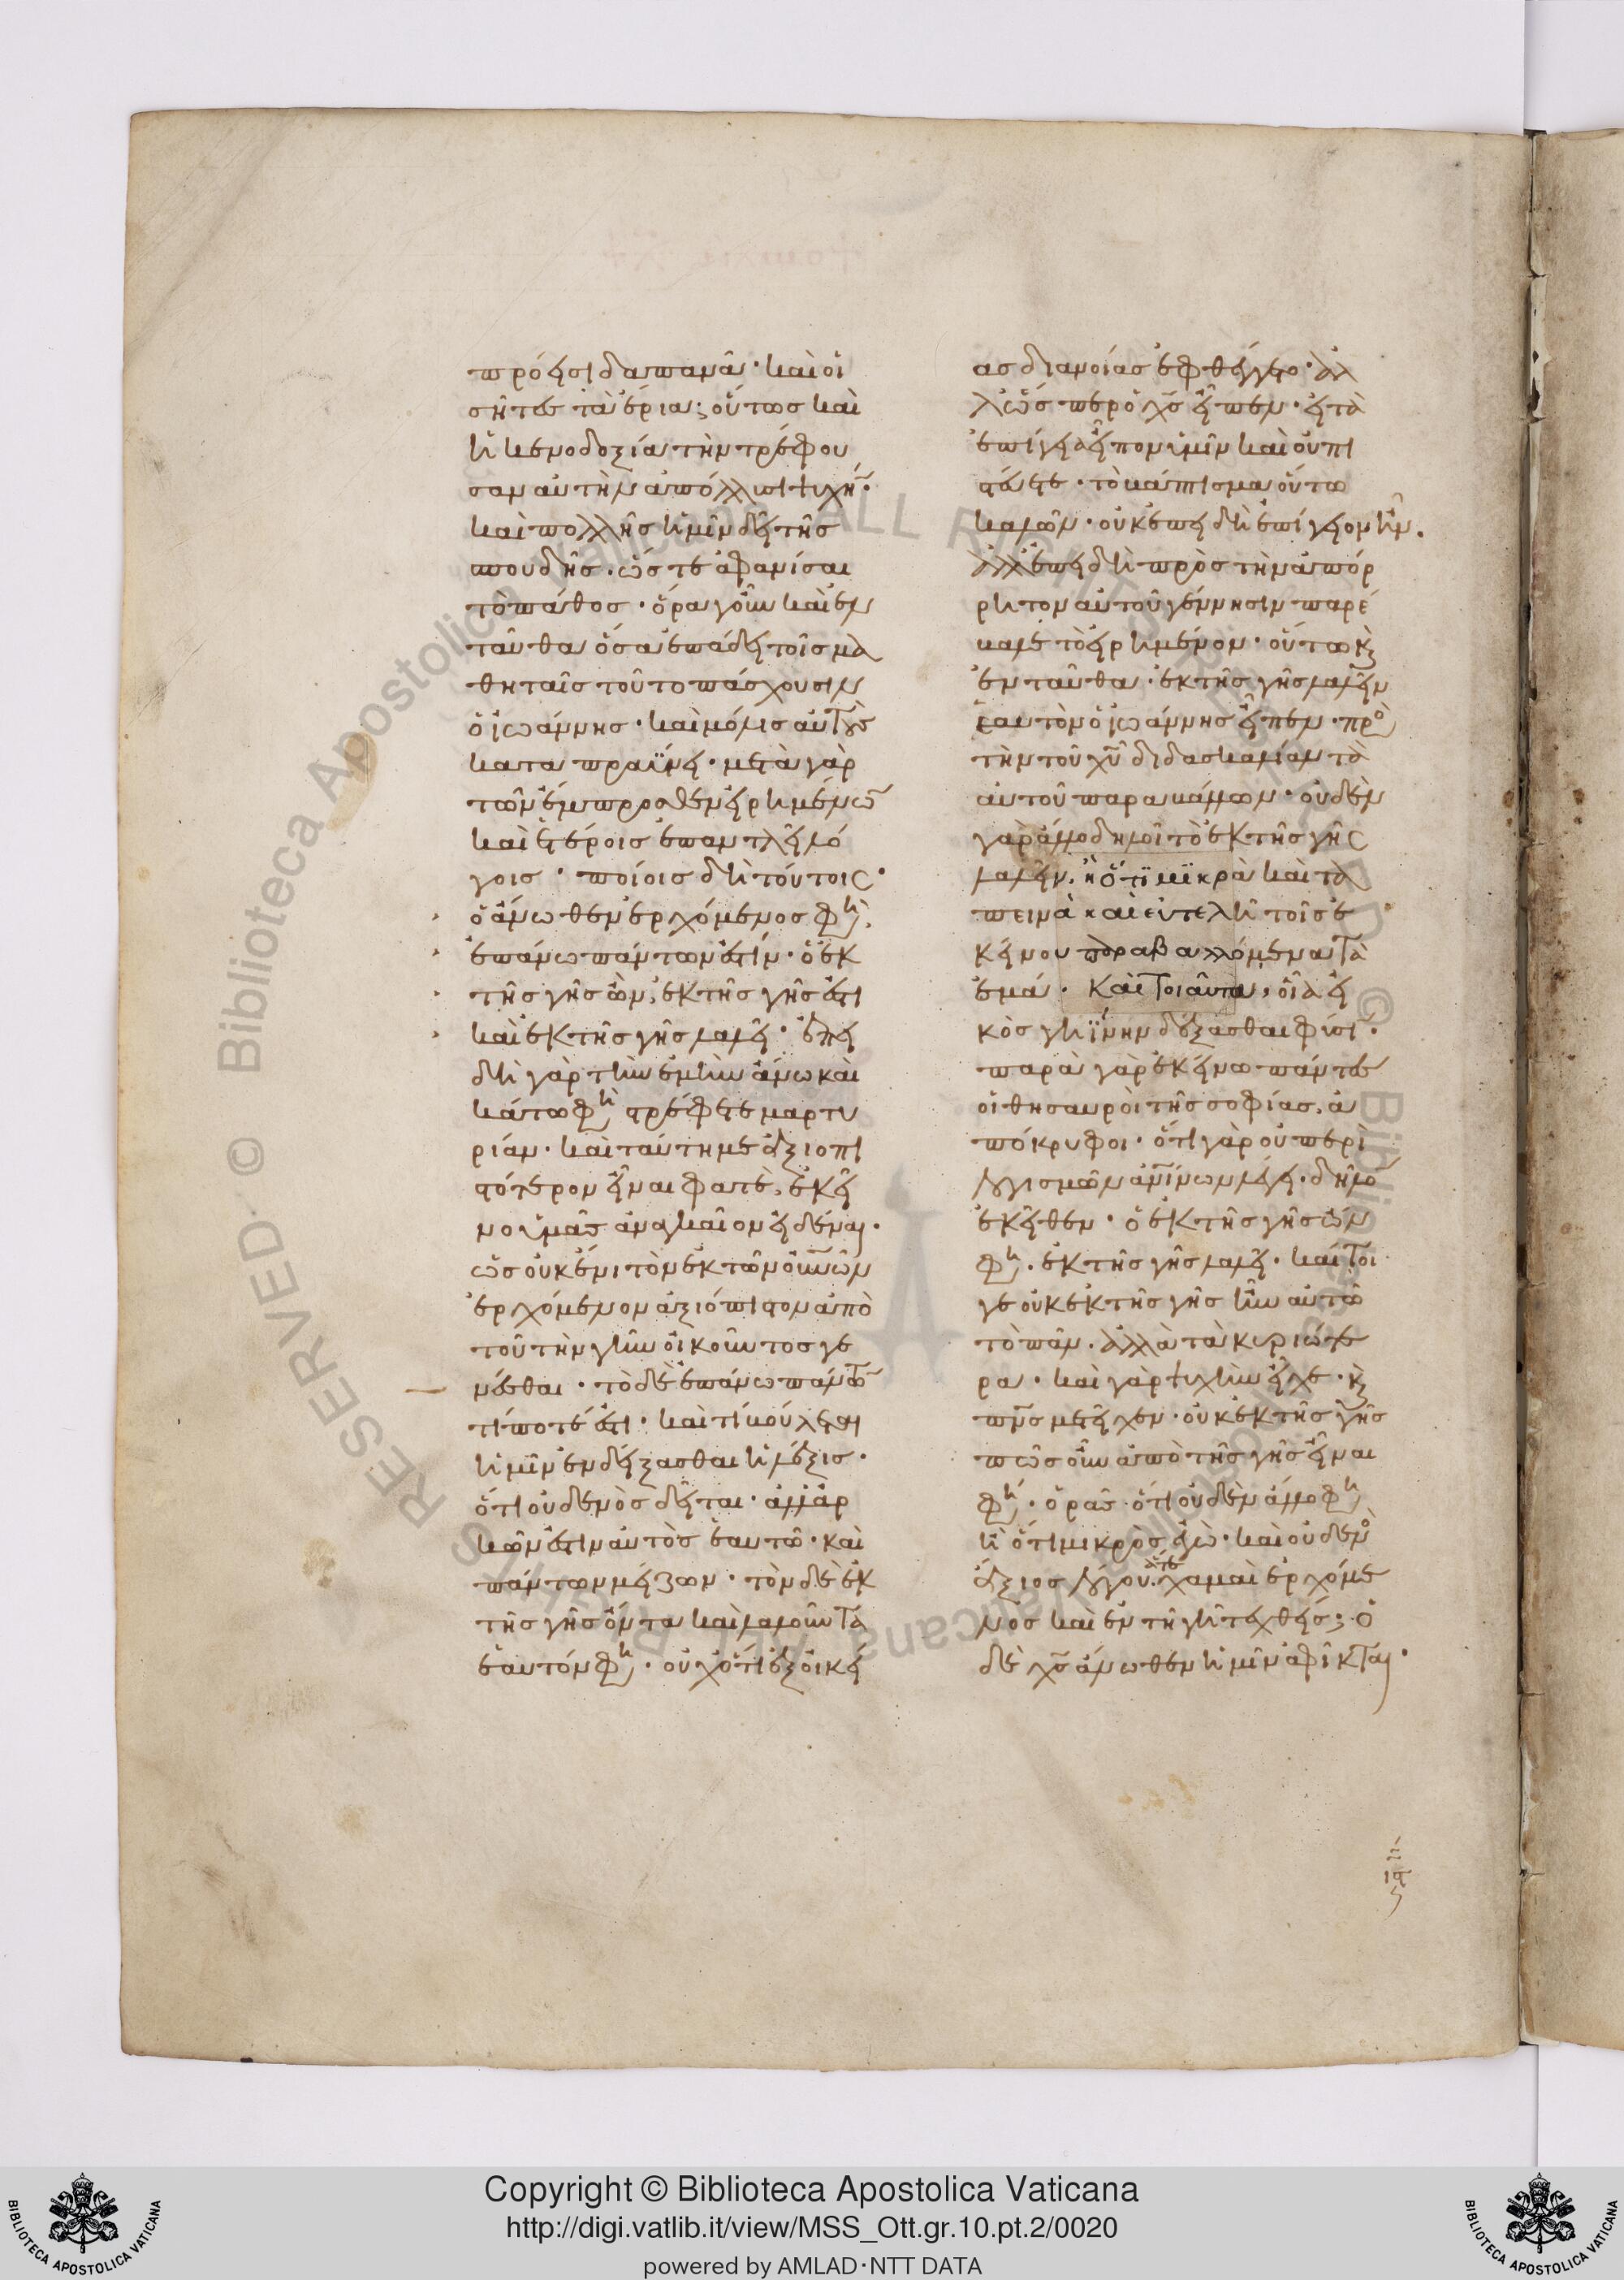 πρόεισι δαπανᾶν· καὶ οἱ
σῆτες τὰ ἔρια· οὕτως καὶ
ἡ κενοδοξία τὴν τρέφου
σαν αὐτὴν ἀπόλλυσι ψυχήν·
καὶ πολλῆς ἡμῖν δεῖ τῆς
σπουδῆς· ὥστε ἀφανίσαι
τὸ πάθος· ὅρα γοῦν καὶ ἐν
ταῦθα ὅσα ἐπάδει τοῖς μα
θηταῖς τοῦτο πάσχουσιν
ὁ ἰωάννης· καὶ μόλις αὐτοὺς
καταπραΰνει· μετὰ γὰρ
τῶν ἔμπροσθεν εἰρημένων
καὶ ἑτέροις ἐπαντλεῖ λό
γοις· ποίοις δὴ τούτοις·
ὁ ἄνωθεν ἐρχόμενος φη·
ἐπάνω πάντων ἐστίν· ὁ ἐκ
τῆς γῆς ὢν, ἐκ τῆς γῆς ἐστι
καὶ ἐκ τῆς γῆς λαλεῖ· ἐπει
δὴ γὰρ τὴν ἐμὴν ἄνω καὶ
κάτω φη στρέφετε μαρτυ
ρίαν· καὶ ταύτη με ἀξιοπι
στότερον εἶναι φατὲ, ἐκεῖ
νο ὑμᾶς ἀναγκαῖον εἰδέναι·
ὡς οὐκ ἔνι τὸν ἐκ τῶν οὐνῶν
ἐρχόμενον ἀξιόπιστον ἀπὸ
τοῦ τὴν γῆν οἰκοῦντος γε
νέσθαι· τὸ δὲ ἐπάνω πάντων
τί ποτέ ἐστι· καὶ τί βούλεται
ἡμῖν ἐνδείξασθαι ἡ λέξις·
ὅτι οὐδενὸς δεῖται· ἀλλ' ἀρ
κῶν ἐστιν αὐτὸς ἑαυτῷ· καὶ
πάντων μείζων· τὸν δὲ ἐκ
τῆς γῆς ὄντα καὶ λαλοῦντα
ἑαυτόν φη· οὐχ ὅτι ἐξ οἰκεί
ας διανοίας ἐφθέγγετο· ἀλ
λ' ὥσπερ ὁ χς εἶπεν· εἰ τὰ
ἐπίγεια εἶπον ὑμῖν καὶ οὐ πι
στεύετε· τὸ βάπτισμα οὕτω
καλῶν· οὐκ ἐπειδὴ ἐπίγειον ἦν·
ἀλλ' ἐπειδὴ πρὸς τὴν ἀπόρ
ρητον αὐτοῦ γέννησιν παρέ
βαλε τὸ εἰρημένον· οὕτω καὶ
ἐνταῦθα· ἐκ τῆς γῆς λαλεῖν
ἑαυτὸν ὁ ἰωάννης εἶπεν· πρὸς
τὴν τοῦ χυ διδασκαλίαν τὰ
αὐτοῦ παραβάλλων· οὐδὲν
γὰρ ἄλλο δηλοῖ τὸ ἐκ τῆς γῆς
λαλεῖν· ἢ ὅτι μϊκρὰ καὶ τα
πεινὰ καὶ εὐτελῆ τοῖς ἐ
κείνου παραβαλλόμενα τὰ
ἐμά· καὶ τοιαῦτα, οἷα εἰ
κὸς γηΐνην δέξασθαι φύσιν·
παρὰ γὰρ ἐκείνω πάντες
οἱ θησαυροὶ τῆς σοφίας, ἀ
πόκρυφοι· ὅτι γὰρ οὐ περὶ
λογισμῶν ἀνίνων λέγει· δῆλον
ἐκεῖθεν· ὁ ἐκ τῆς γῆς ὢν
φη· ἐκ τῆς γῆς λαλεῖ· καί τοι
γε οὐκ ἐκ τῆς γῆς ἦν αὐτῶ
τὸ πᾶν· ἀλλὰ τὰ κυριώτε
ρα· καὶ γὰρ ψυχὴν εἶχε· καὶ
πνς μετεῖχεν· οὐκ ἐκ τῆς γῆς
πῶς οὖν ἀπὸ τῆς γῆς εἶναι
φη· ὁρᾶς ὅτι οὐδὲν ἄλλο φη
ἢ ὅτι μικρὸς ἐγὼ· καὶ οὐδενὸς
ἄξιος λόγου· ἅτε χαμαὶ ἐρχόμε
νος καὶ ἐν τῇ γῇ τεχθείς· ὁ
δὲ χς ἄνωθεν ἡμῖν ἀφῖκται·
Copyright © Biblioteca Apostolica Vaticana
http://digi.vatlib.it/view/MSS_Ott.gr.10.pt.2/0020
powered by AMLAD·NTT DATA
BIBLIOTECA APOSTOLICA VATICANA
BIBLIOTECA APOSTOLICA VATICANA